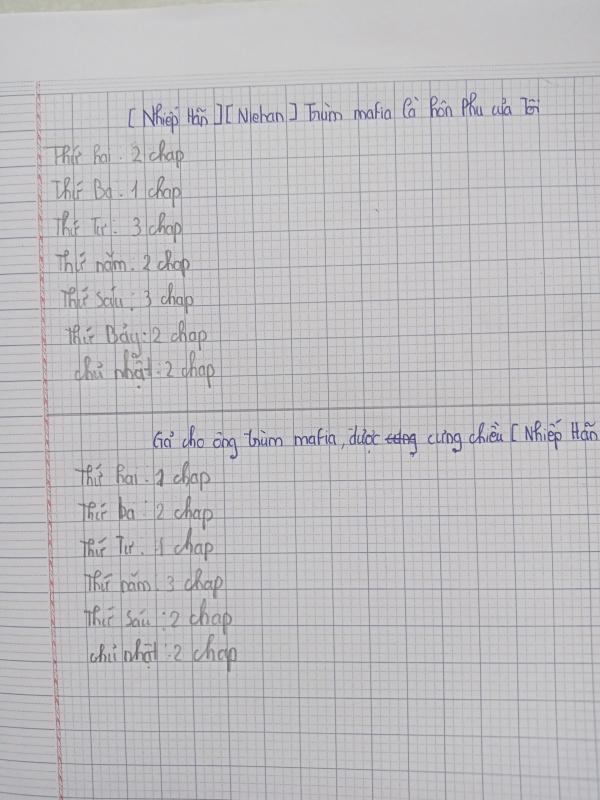 [ Nhiếp Hãn ] [ Niehan ] Trùm mafia là hôn phu của Tôi
Thứ hai : 2 chap
Thứ Ba : 1 chap
Thứ Tư : 3 chap
Thứ năm : 2 chap
Thứ sáu : 3 chap
Thứ Bảy : 2 chap
chủ nhật : 2 chap
Gả cho ông trùm mafia, được cưng chiều [ Nhiếp Hãn
Thứ hai : 1 chap
Thứ ba : 2 chap
Thứ Tư : 1 chap
Thứ năm : 3 chap
Thứ sáu : 2 chap
chủ nhật : 2 chap